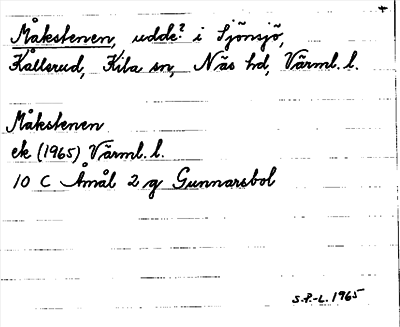 Måkstenen, udde? i Sjönsjö,
Kållsrud, Kila sn, Näs hd, Värml. l.
Måkstenen
ek (1965) Värml. l.
10 C Åmål 2 g Gunnarsbol
S.P.-L. 1965